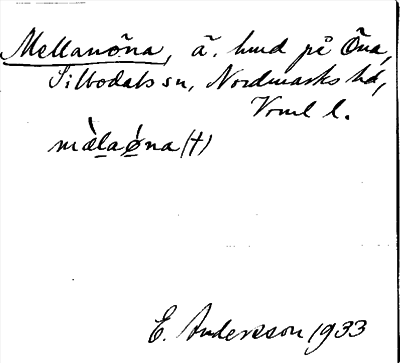 Mellanöna, ä. hmd på Öna,
Silbodals sn, Nordmarks hd,
Vrml l.
mæ̀laǿna (†)
E. Andersson 1933